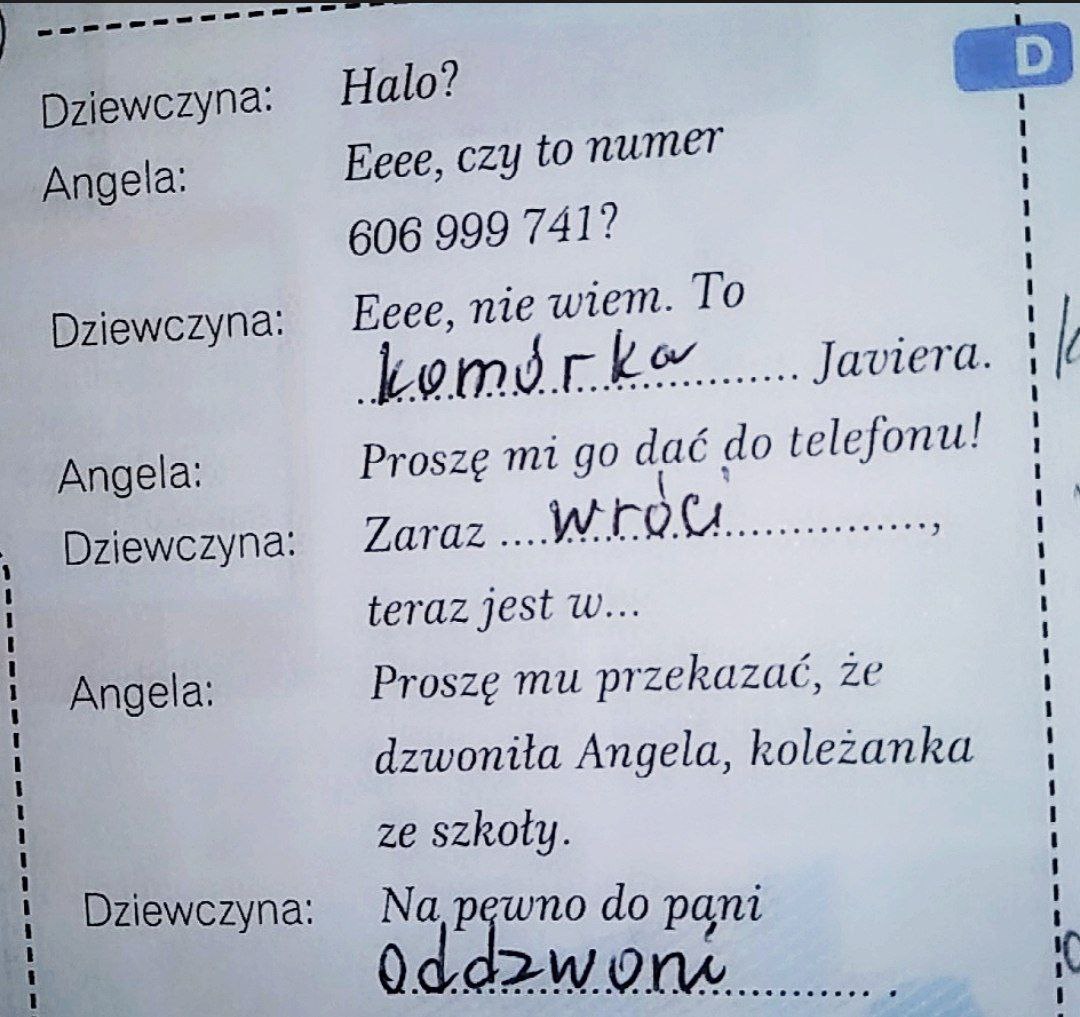 D
Dziewczyna: Halo?
Angela: Eeee, czy to numer
606 999 741?
Dziewczyna: Eeee, nie wiem. To
komórka Javiera.
Angela: Proszę mi go dać do telefonu!
Dziewczyna: Zaraz wróci,
teraz jest w...
Angela: Proszę mu przekazać, że
dzwoniła Angela, koleżanka
ze szkoły.
Dziewczyna: Na pewno do pani
oddzwoni.